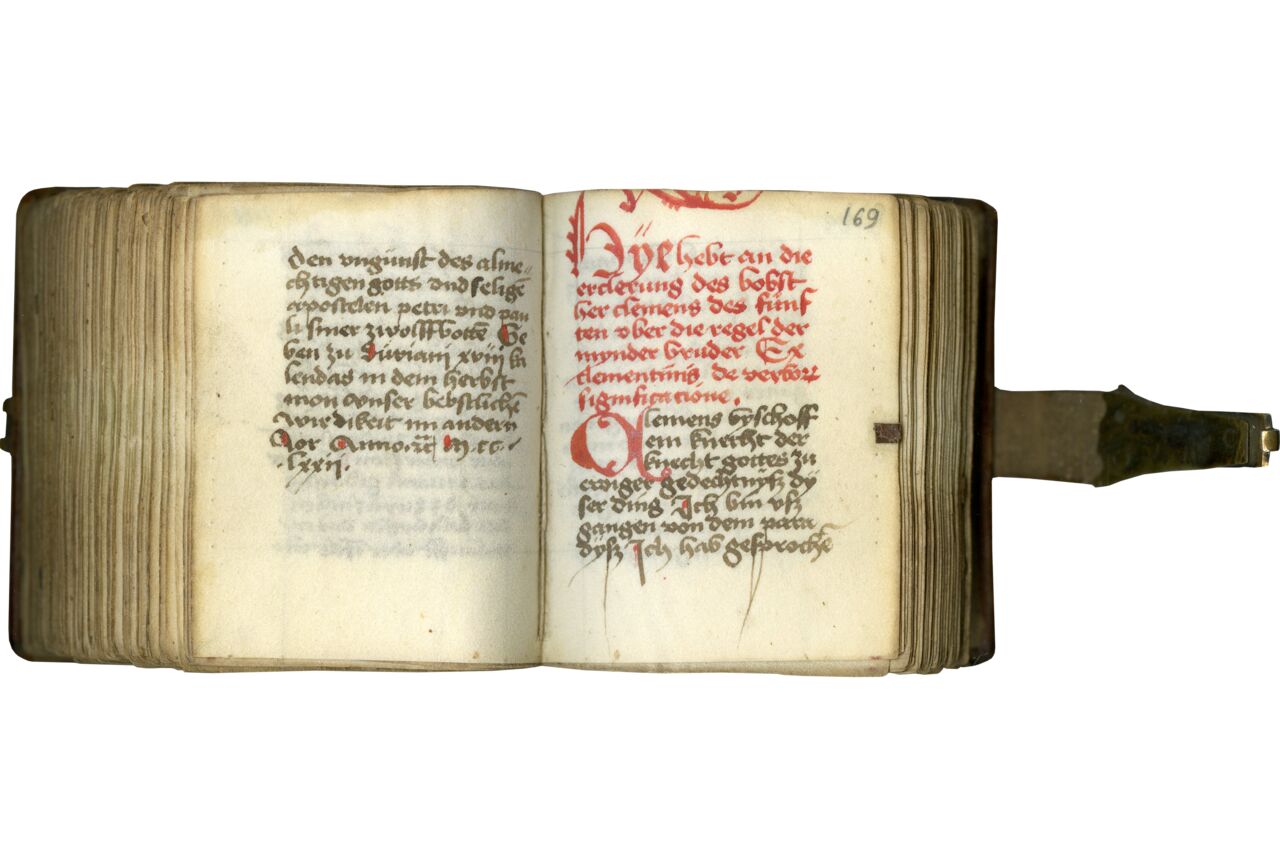 den vngunst des alme„
chtigen gotts vnd seligē
appostelen petri vnd pau
li siner zwolffbottē Ge
ben zu Suriani xviij ka
lendas in dem herbst
mon vnser bebstlichē
wirdikeit im andern
Jor Anno m cc
lxxij.
169
Hÿe hebt an die
erclerung des bobst
her clemens des fünf
ten vber die regel der
mynder bruder Ex
clementinis de verbor
significatione.
Clemens byschoff
ein knecht der
knecht gottes zu
ewiger gedechtnyß dy
ser ding Ich bin vß
gangen von dem para
dyß Ich hab gesprochē